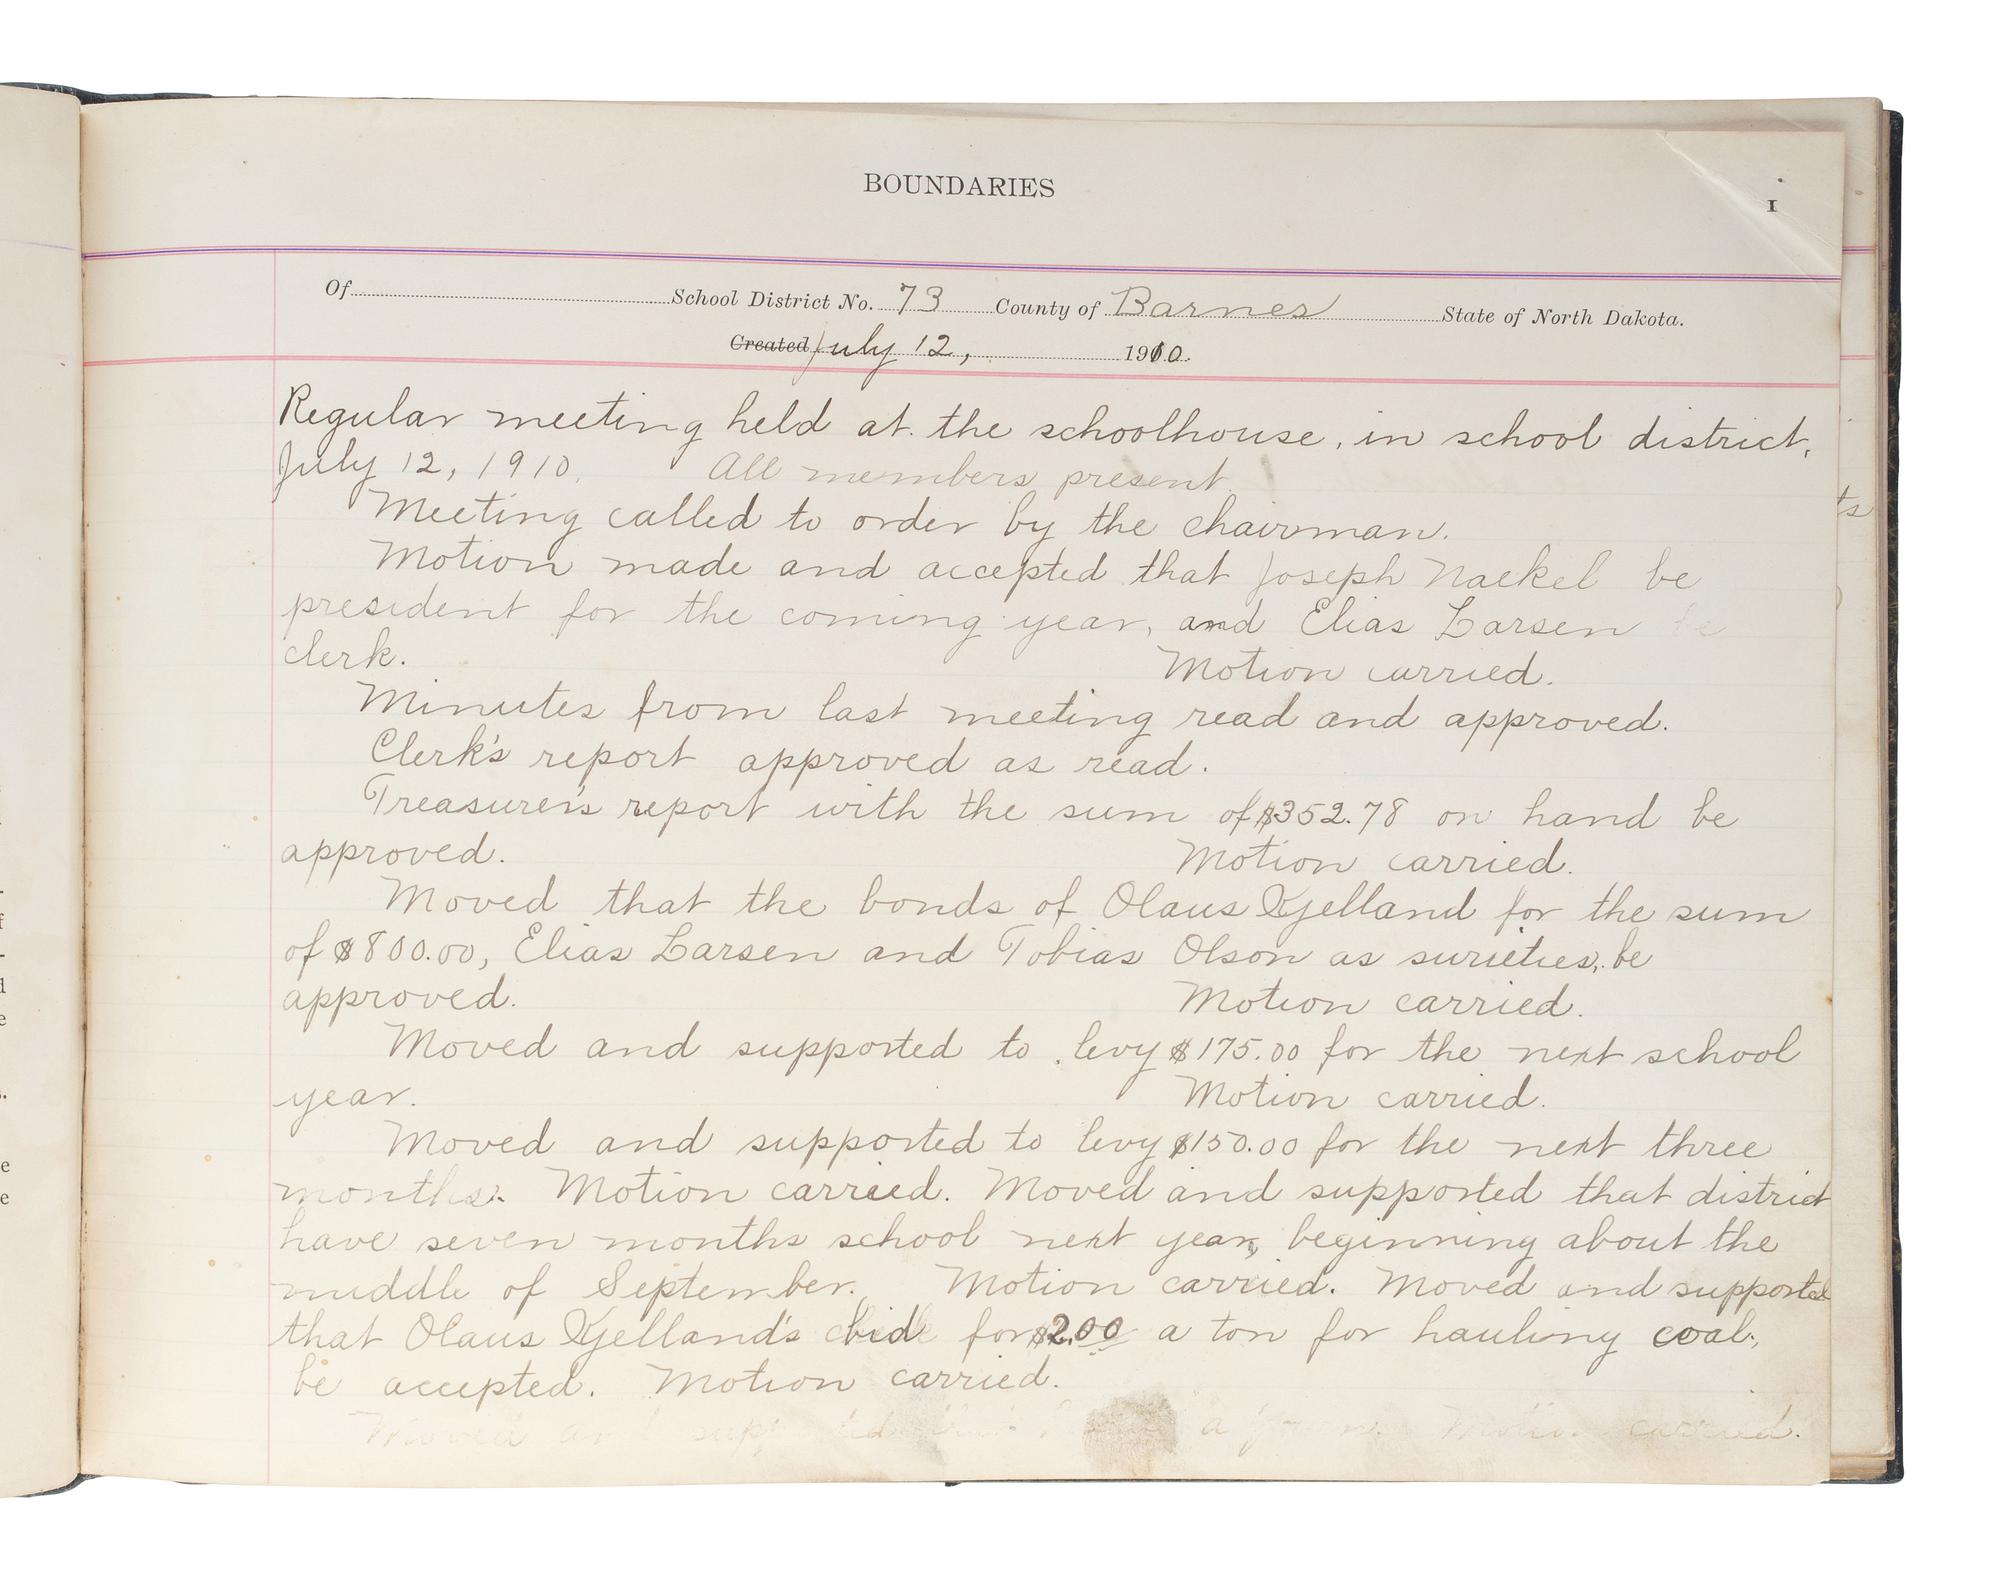 BOUNDARIES
1
Of School District No. 73 County of Barnes State of North Dakota.
Created July 12, 1910.
Regular meeting held at the schoolhouse, in school district,
July 12, 1910. All members present.
Meeting called to order by the chairman.
Motion made and accepted that Joseph Naekel be
president for the coming year, and Elias Larsen be
clerk. Motion carried.
Minutes from last meeting read and approved.
Clerk's report approved as read.
Treasurer's report with the sum of $352.78 on hand be
approved. Motion carried.
Moved that the bonds of Olaus Kjelland for the sum
of $800.00, Elias Larsen and Tobias Olson as surieties, be
approved. Motion carried.
Moved and supported to levy $175.00 for the next school
year. Motion carried.
Moved and supported to levy $150.00 for the next three
months. Motion carried. Moved and supported that district
have seven months school next year, beginning about the
middle of September. Motion carried. Moved and supported
that Olaus Kjelland's bid for $2.00 a ton for hauling coal,
be accepted. Motion carried.
Moved and supported a Motion carried.
ts